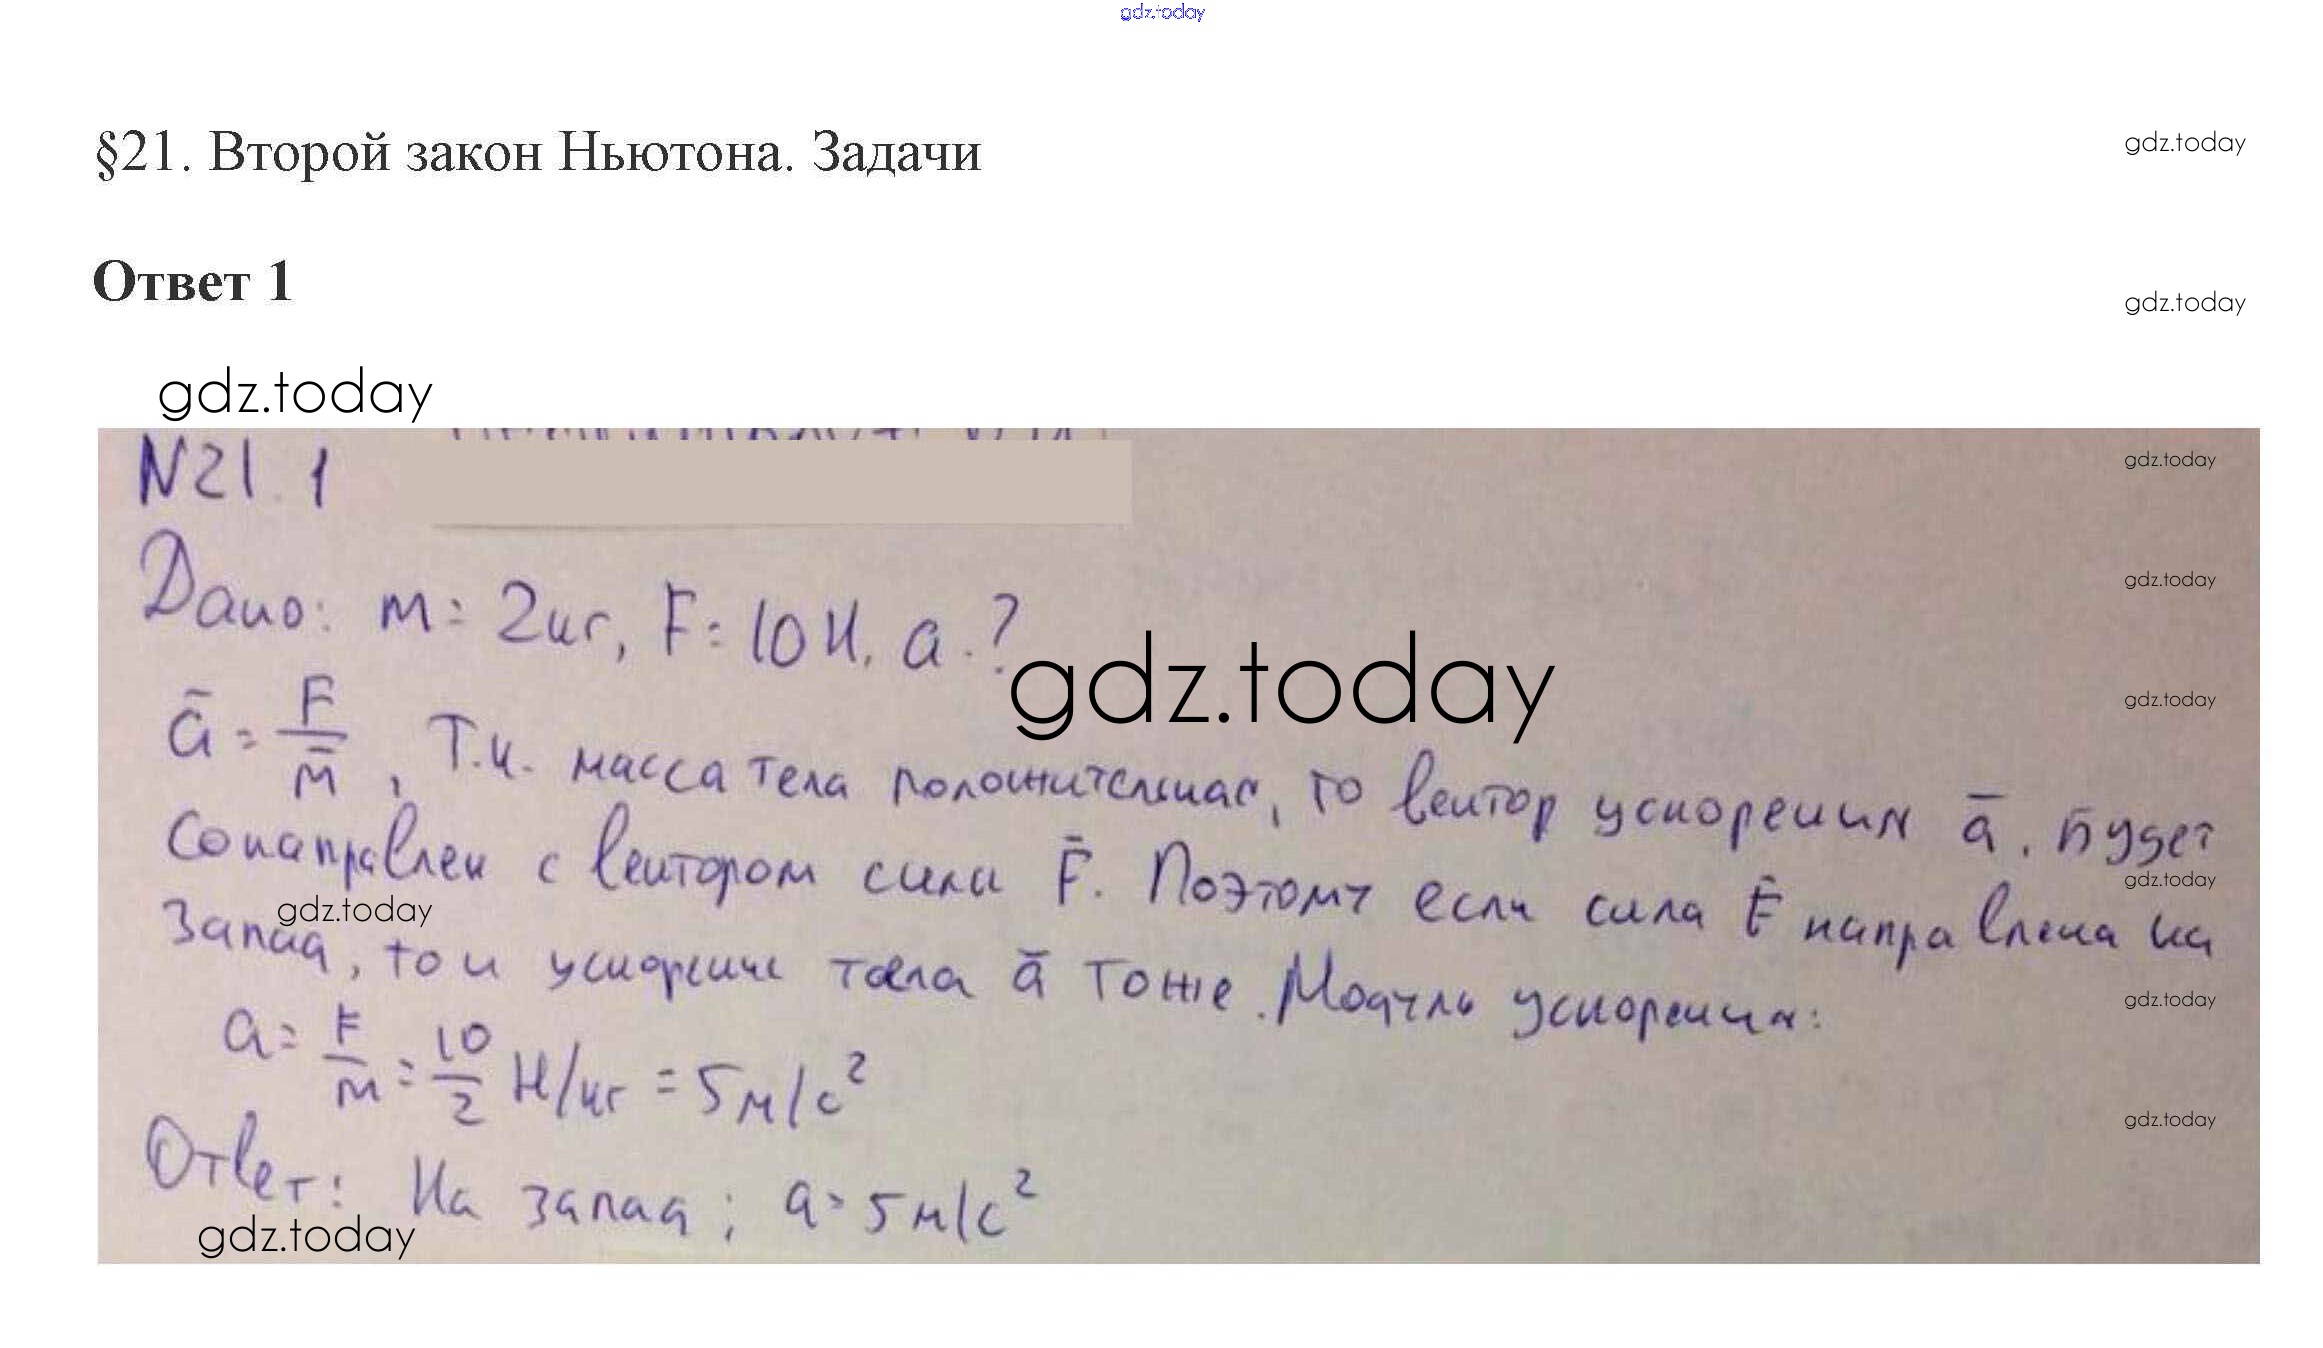 gdz.today
§21. Второй закон Ньютона. Задачи
gdz.today
Ответ 1
gdz.today
gdz.today
N21.1
gdz.today
Дано: m = 2кг, F = 10 Н. a - ?
gdz.today
gdz.today
ā = F/m̄, Т.к. масса тела положительная, то вектор ускорения ā. Будет
gdz.today
сонаправлен с вектором силы F̄. Поэтому если сила F̄ направлена на
gdz.today
gdz.today
Запад, то и ускорение тела ā тоже. Модуль ускорения:
gdz.today
a = F/m = 10/2 Н/кг = 5 м/с²
gdz.today
Ответ: На запад; a = 5 м/с²
gdz.today